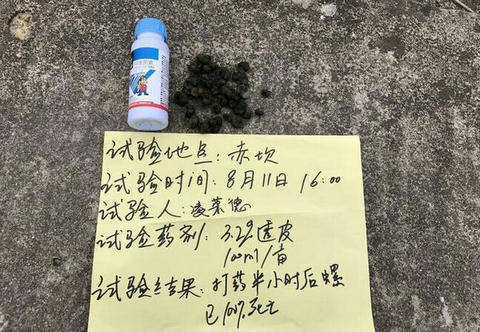 试验地点：赤坎
试验时间：8月11日 16:00
试验人：凌荣德
试验药剂：3.2%透皮
100ml/亩
试验结果：打药半小时后螺
已100%死亡